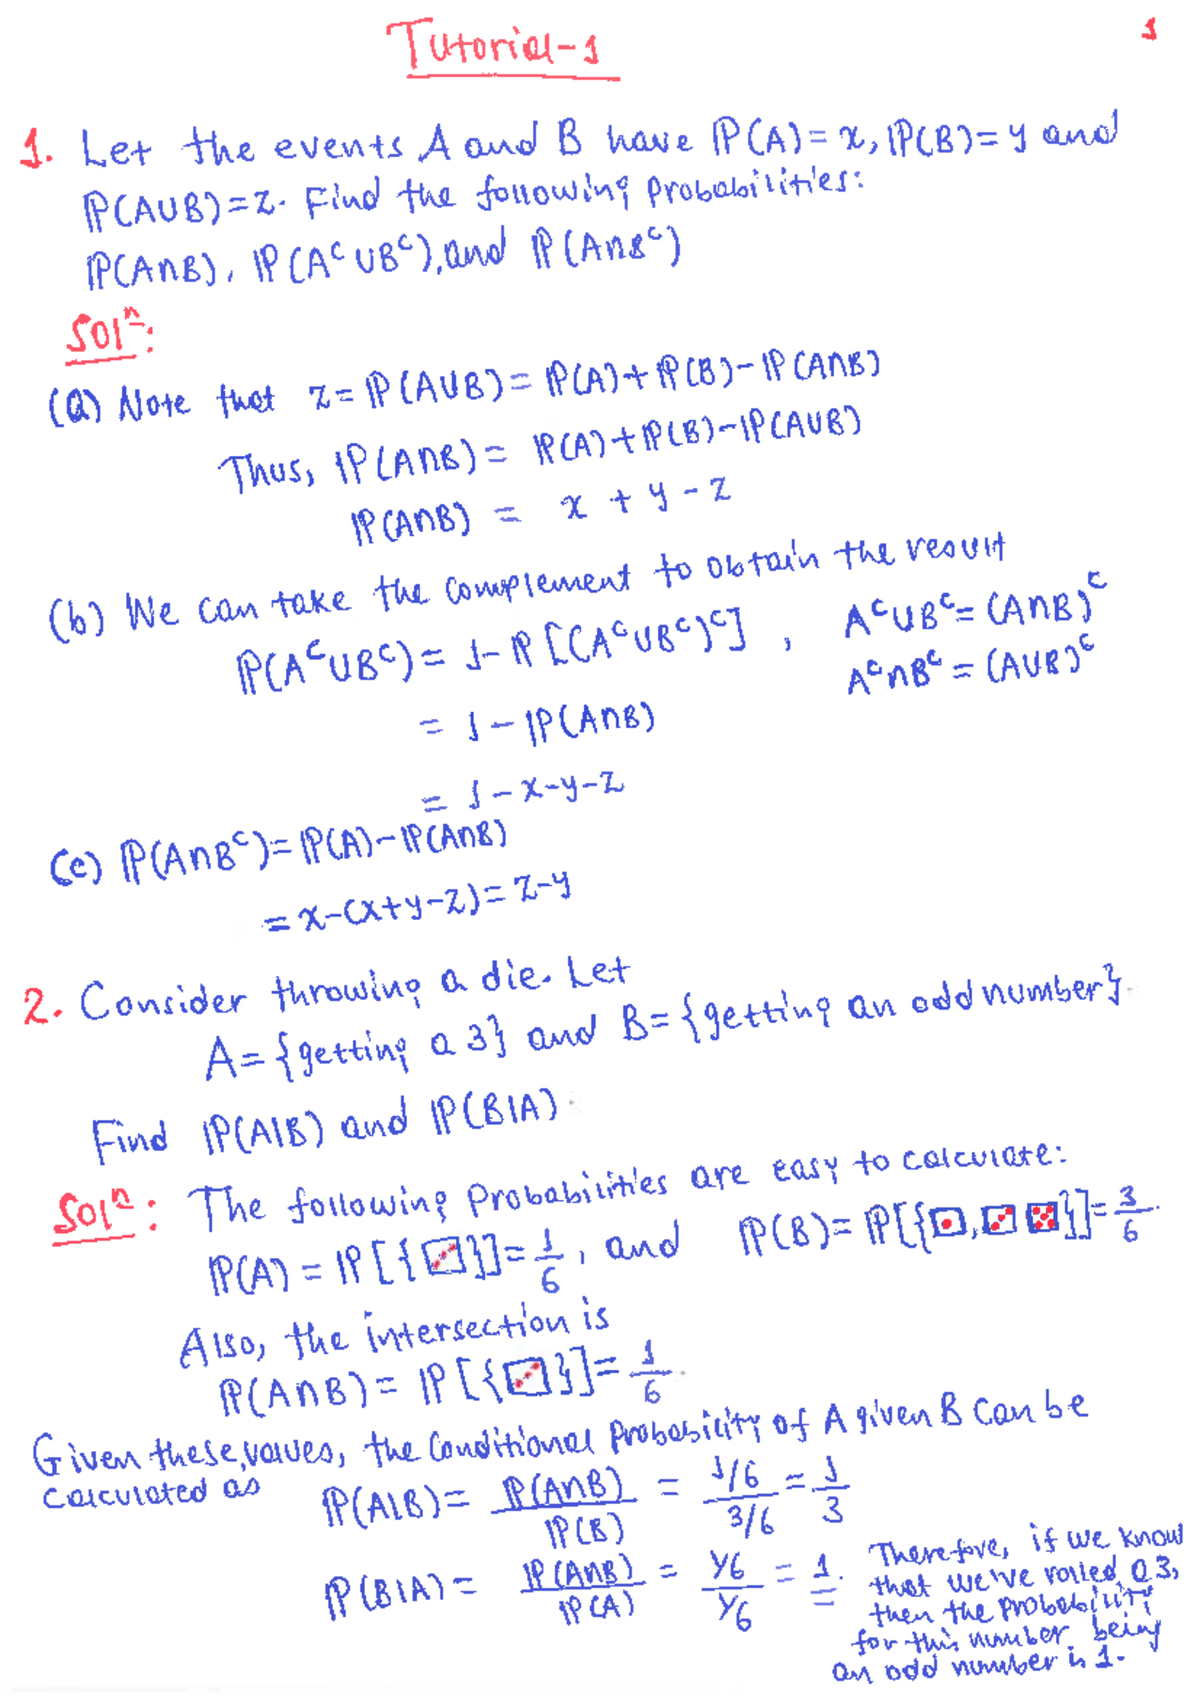 Tutorial-1
1
1. Let the events A and B have ℙ(A)= x, ℙ(B)= y and
ℙ(A∪B)=z. Find the following probabilities:
ℙ(A∩B), ℙ(Aᶜ∪Bᶜ), and ℙ(A∩Bᶜ)
Solⁿ:
(a) Note that z = ℙ(A∪B) = ℙ(A)+ℙ(B)-ℙ(A∩B)
Thus, ℙ(A∩B) = ℙ(A)+ℙ(B)-ℙ(A∪B)
ℙ(A∩B) = x + y - z
(b) We can take the complement to obtain the result
ℙ(Aᶜ∪Bᶜ) = 1-ℙ[(Aᶜ∪Bᶜ)ᶜ] , Aᶜ∪Bᶜ = (A∩B)ᶜ
Aᶜ∩Bᶜ = (A∪B)ᶜ
= 1-ℙ(A∩B)
= 1-x-y-z
(c) ℙ(A∩Bᶜ) = ℙ(A)-ℙ(A∩B)
= x-(x+y-z) = z-y
2. Consider throwing a die. Let
A = {getting a 3} and B = {getting an odd number}.
Find ℙ(A|B) and ℙ(B|A).
Solⁿ: The following probabilities are easy to calculate:
ℙ(A) = ℙ[{⚂}] = 1/6, and ℙ(B) = ℙ[{⚀,⚂ ⚄}] = 3/6.
Also, the intersection is
ℙ(A∩B) = ℙ[{⚂}] = 1/6.
Given these, values, the Conditional probability of A given B can be
calculated as
ℙ(A|B) = ℙ(A∩B)/ℙ(B) = 1/6 / 3/6 = 1/3
ℙ(B|A) = ℙ(A∩B)/ℙ(A) = 1/6 / 1/6 = 1.
Therefore, if we know
that we've rolled a 3,
then the probability
for this number being
an odd number is 1.